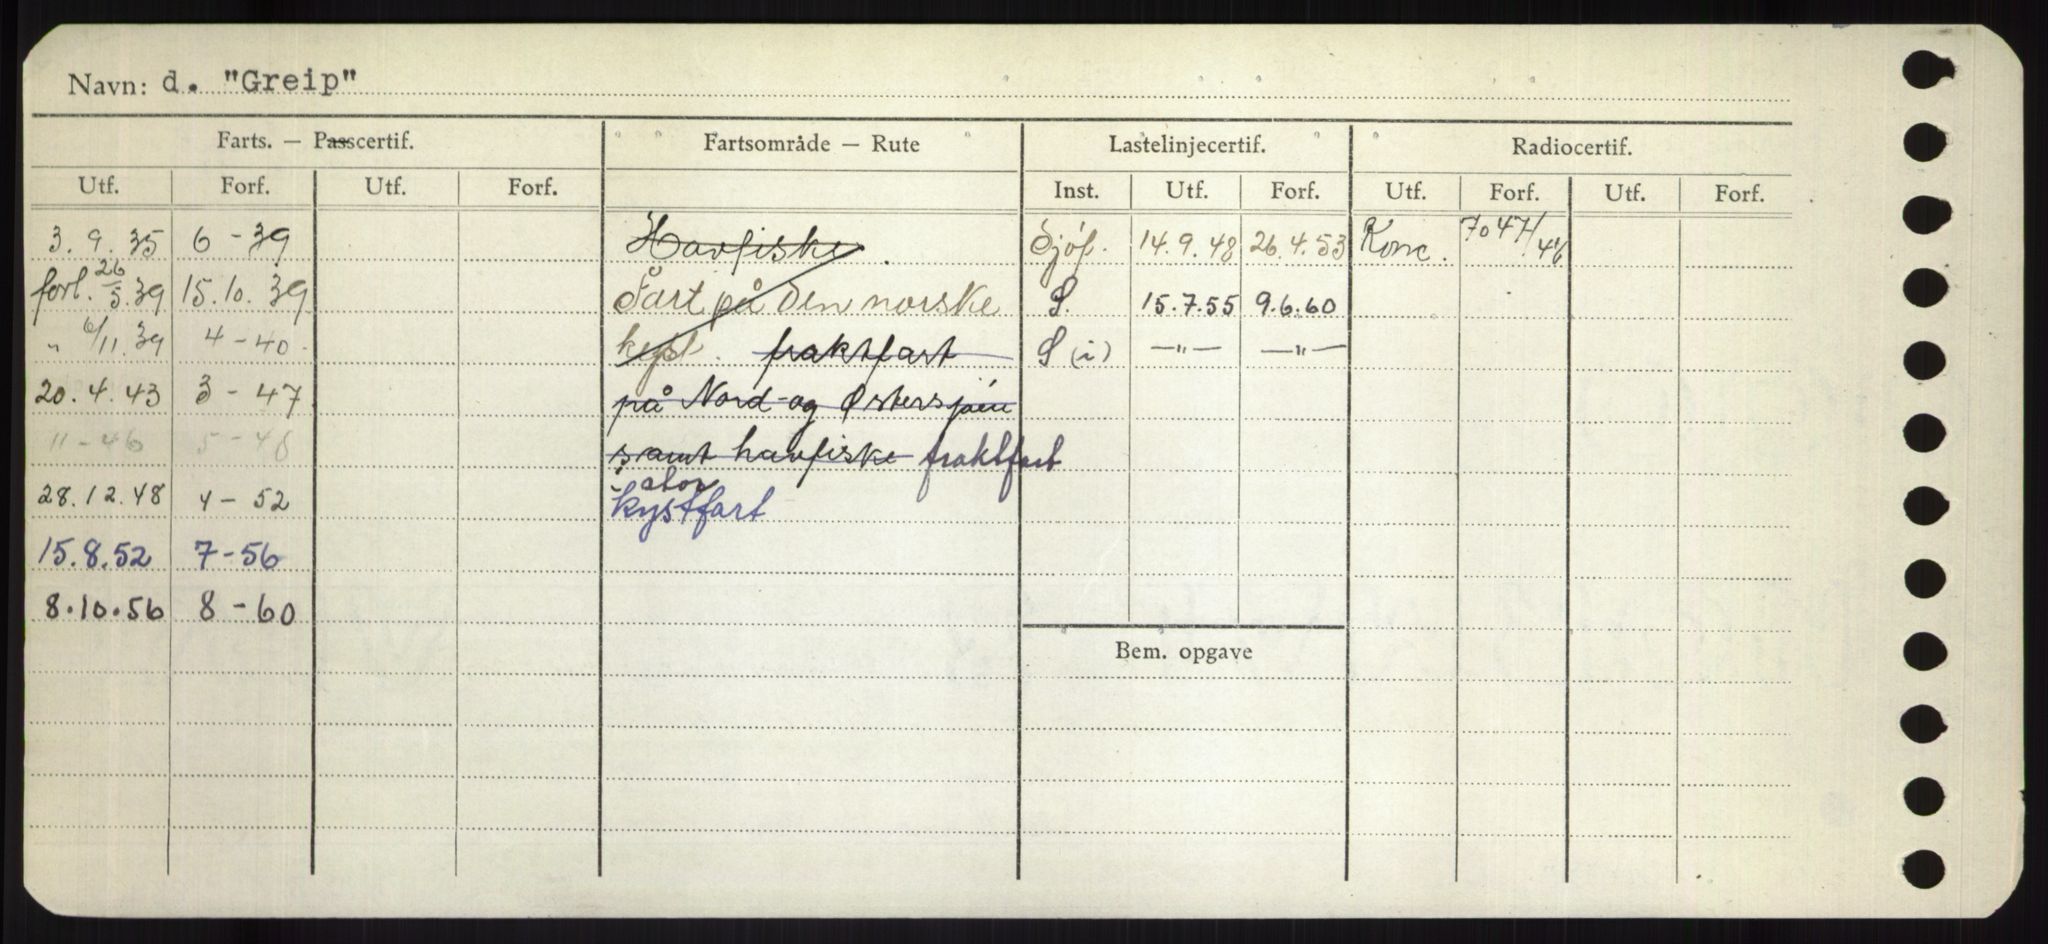 Navn: d. "Greip"
Farts. — Passcertif. Fartsområde — Rute Lastelinjecertif. Radiocertif.
Utf. Forf. Utf. Forf. Inst. Utf. Forf. Utf. Forf. Utf. Forf.
3.9.35 6-39 Havfiske. Sjöf. 14.9.48 26.4.53 Konc. 7047/46
forl. 26/5.39 15.10.39 Fart på den norske S. 15.7.55 9.6.60
" 6/11.39 4-40. kyst. fraktfart S (i) —"— —"—
20.4.43 3-47 på Nord- og Østersjøen
11-46 5-48 samt havfiske fraktfart
28.12.48 4-52 stor kystfart
15.8.52 7-56
8.10.56 8-60
Bem. opgave